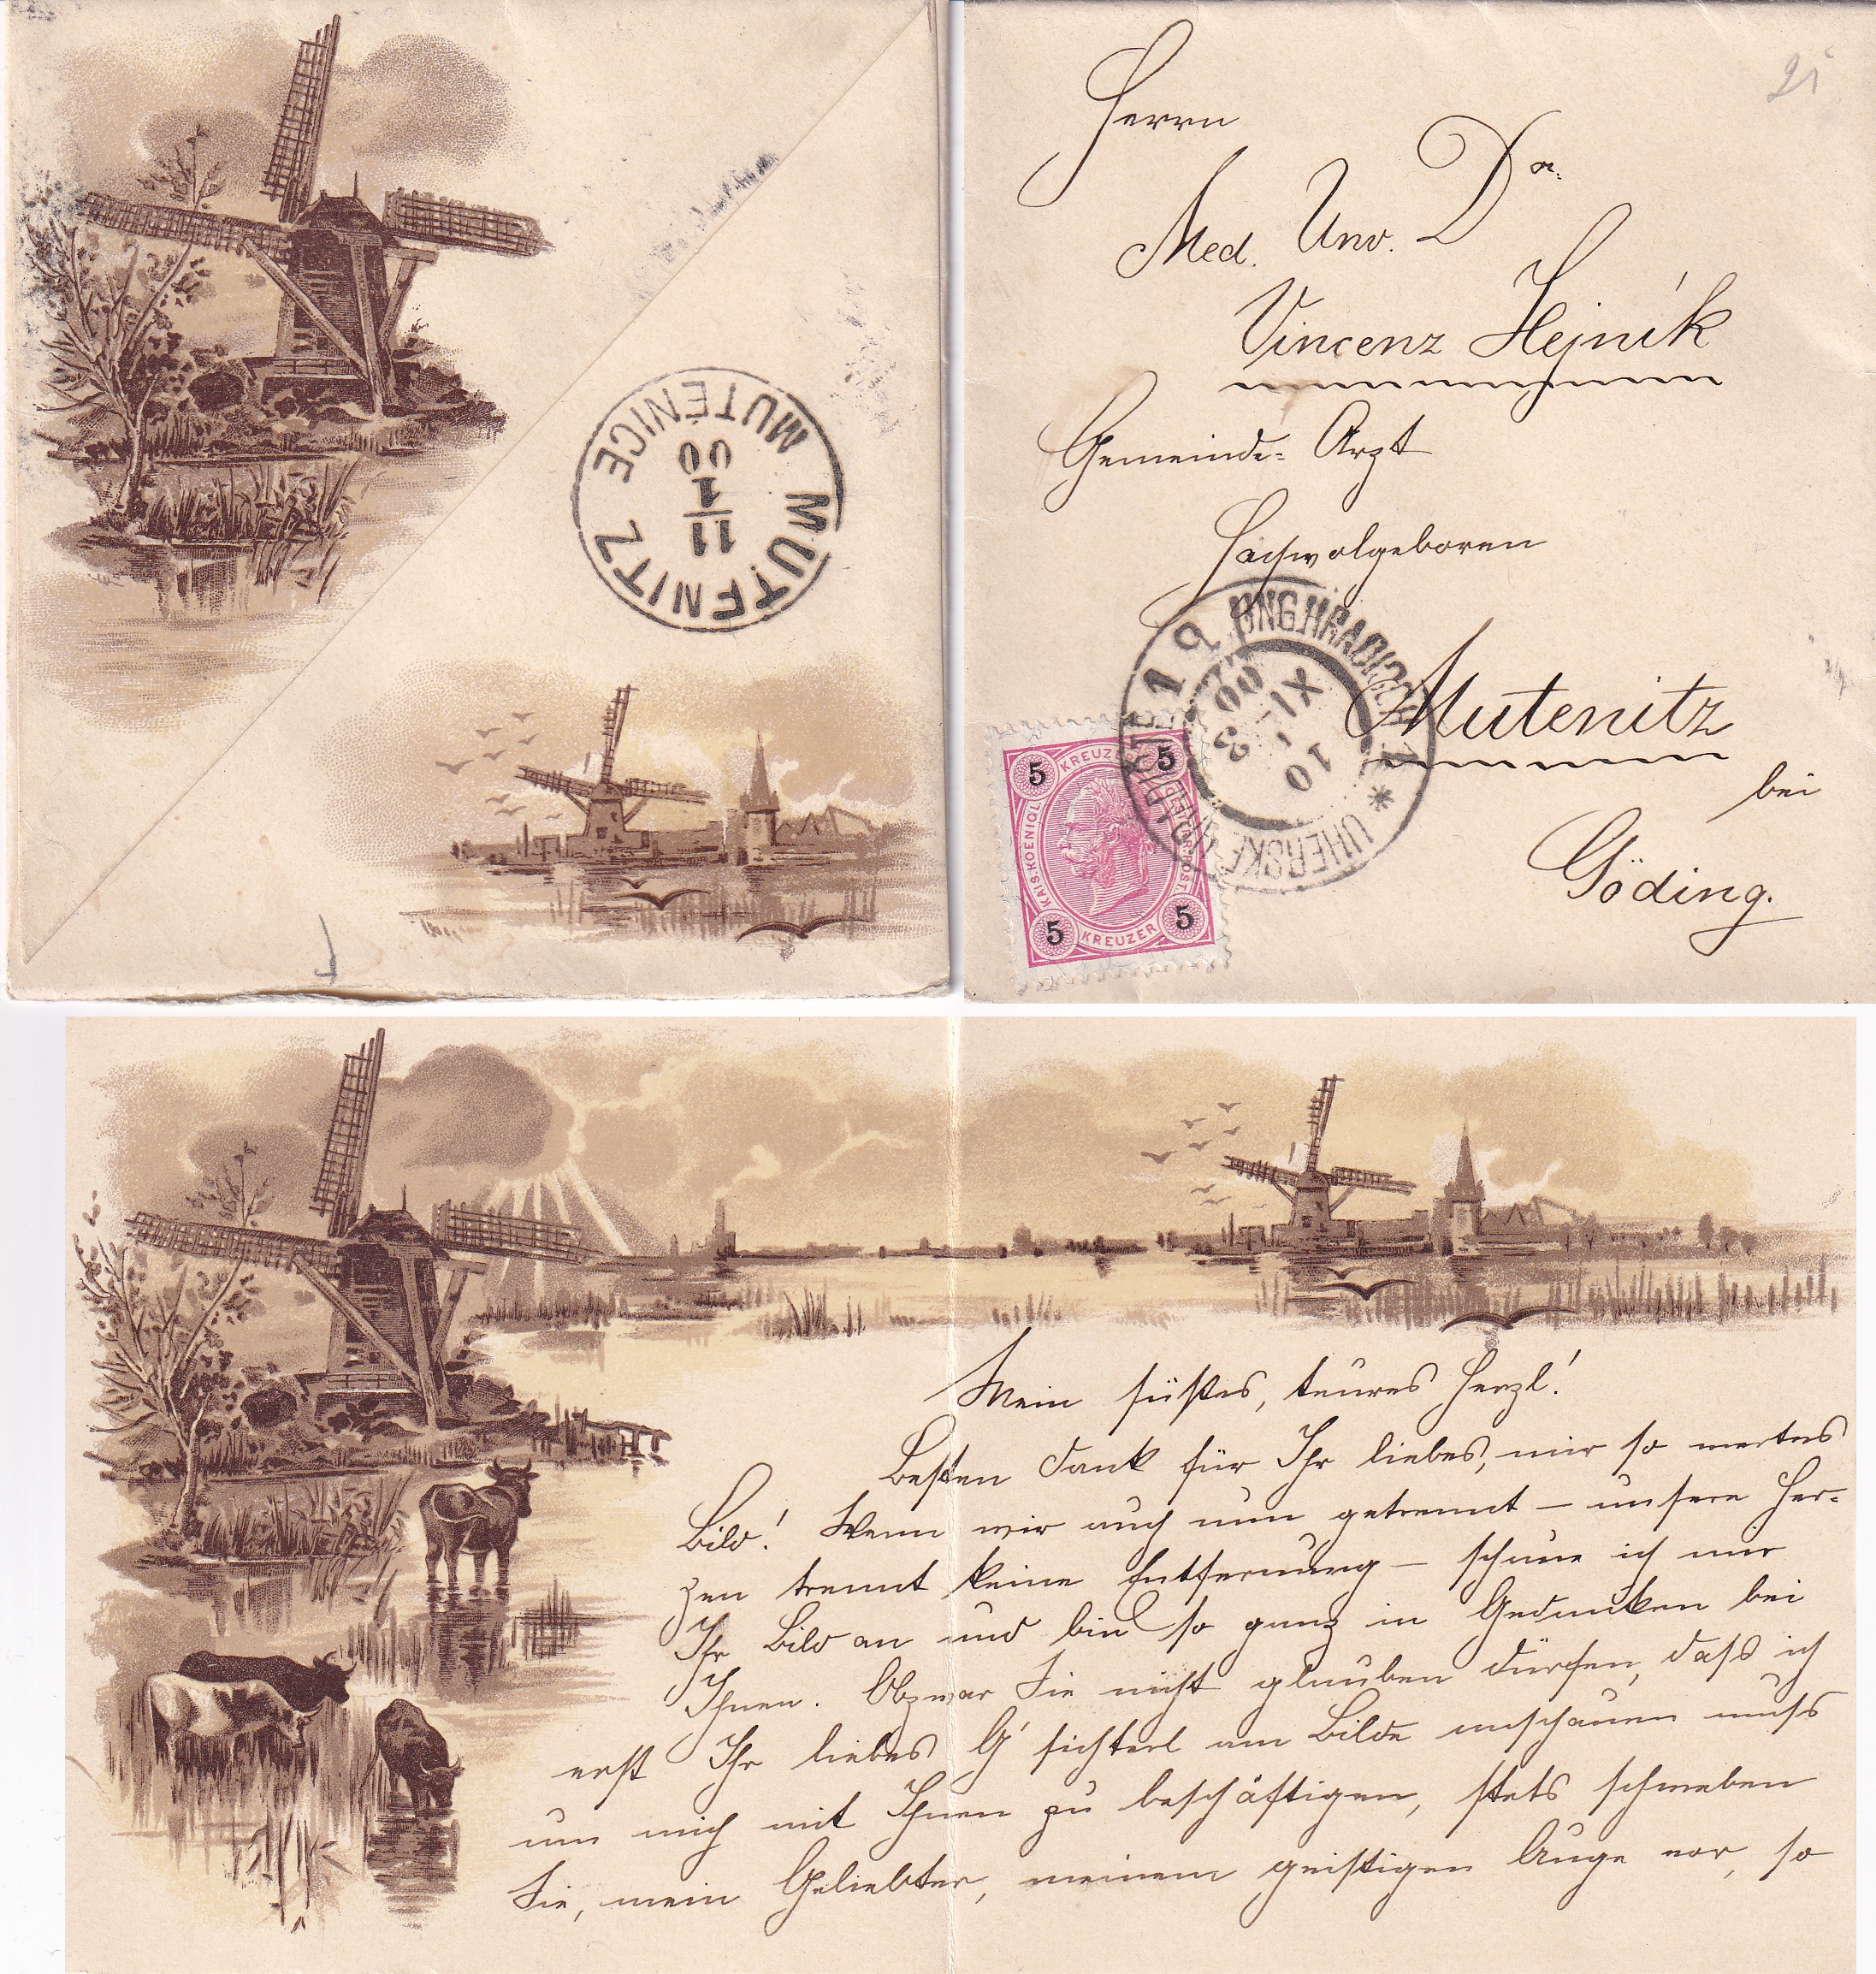 MUTENITZ
MUTĚNICE
11
1
00
Herrn
Med. Unv. Dr.
Vincenz Hejník
Gemeinde-Arzt
Hochwolgeboren
Mutenitz
bei
Göding.
UNG. HRADISCH
UHERSKÉ
10
XI
00
KREUZER
5 5
KAIS. KOENIGL.
5 5
KREUZER
Mein süßtes, teures Herzl!
Besten Dank für Ihr liebes, mir so wertes
Bild! Wenn wir auch nun getrennt – unsere Her-
zen trennt keine Entfernung – schaue ich nur
Ihr Bild an und bin so ganz in Gedanken bei
Ihnen. Obzwar Sie nicht glauben dürfen, dass ich
erst Ihr liebes G'sichterl am Bilde anschauen muss
um mich mit Ihnen zu beschäftigen, stets schweben
Sie, mein Geliebter, meinem geistigen Auge vor, so